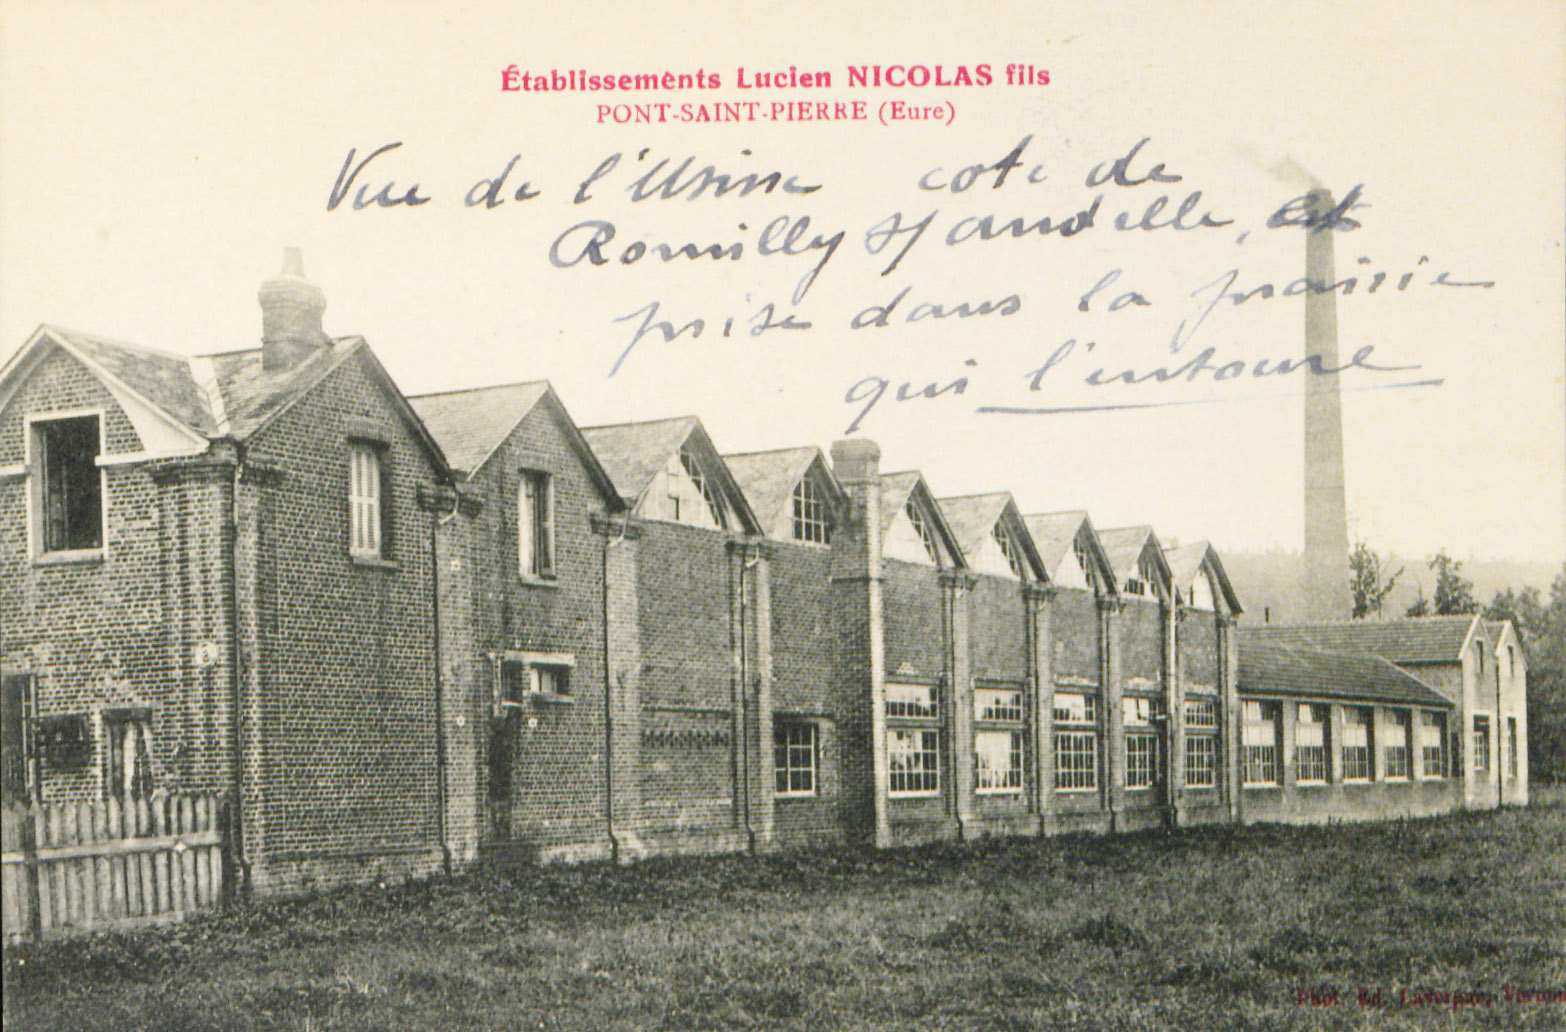 Établissements Lucien NICOLAS fils
PONT-SAINT-PIERRE (Eure)
Vue de l'Usine coté de
Romilly s/ andelle, et
prise dans la prairie
qui l'entoure
Phot. Ed. Lavergne, Vernon